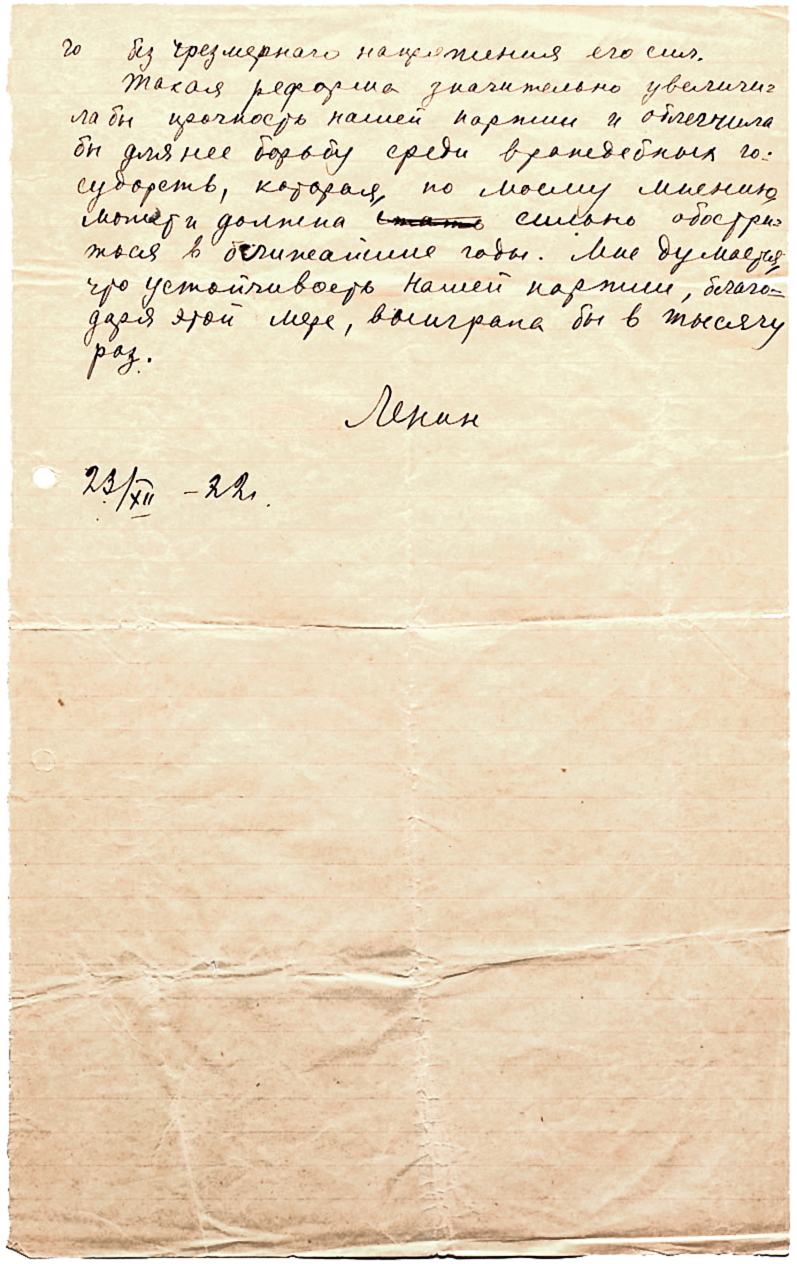 го без чрезмернаго напряжения его сил.
Такая реформа значительно увеличи-
ла бы прочность нашей партии и облегчила
бы для нее борьбу среди враждебных го-
сударств, которая, по моему мнению,
может и должна стать сильно обостри-
ться в ближайшие годы. Мне думается,
что устойчивость нашей партии, благо-
даря этой мере, выиграла бы в тысячу
раз.
Ленин
23/XII - 22 г.